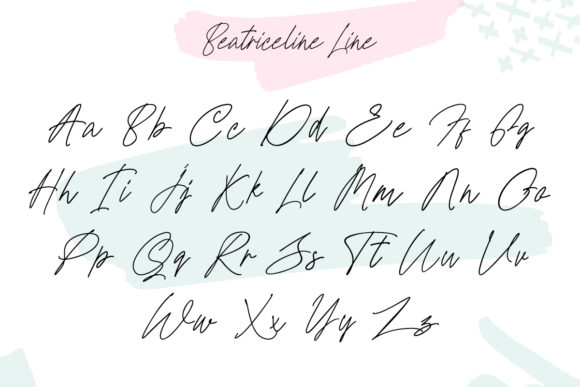 Beatriceline Line
Aa Bb Cc Dd Ee Ff Gg
Hh Ii Jj Kk Ll Mm Nn Oo
Pp Qq Rr Ss Tt Uu Vv
Ww Xx Yy Zz